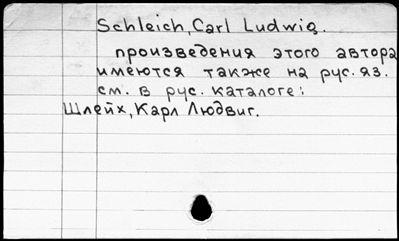 Schleich, Carl Ludwig.
произведения этого автора
имеются также на рус. яз.
см. в рус. каталоге:
Шлейх, Карл Людвиг.